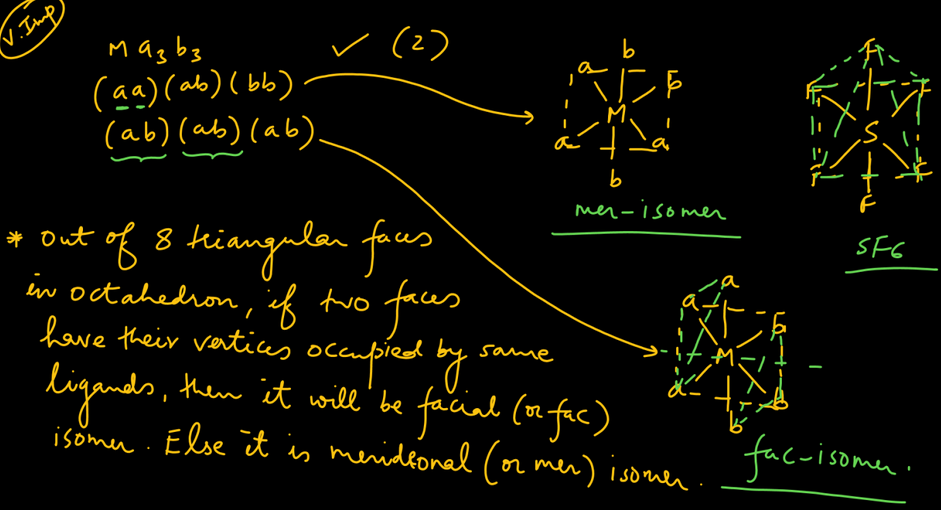 V. Imp
M a3 b3 ✓ (2)
(aa) (ab) (bb)
(ab) (ab) (ab)
b
a b
M
a a
b
mer-isomer
F
F F
S
F F
F
SF6
* Out of 8 triangular faces
in octahedron, if two faces
have their vertices occupied by same
ligands, then it will be facial (or fac)
isomer. Else it is meridional (or mer) isomer.
a
a b
M
a b
b
fac-isomer.